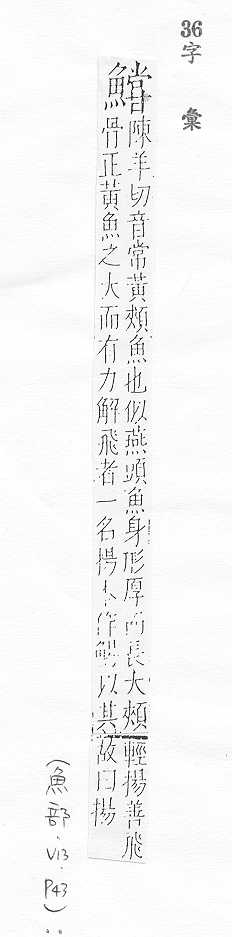 36
字彙
鱨
陳羊切音常黃頰魚也似燕頭魚身形厚而長大頰
骨正黃魚之大而有力解飛者一名揚本作以其
輕揚善飛
故曰揚
(魚部.V13.P43)